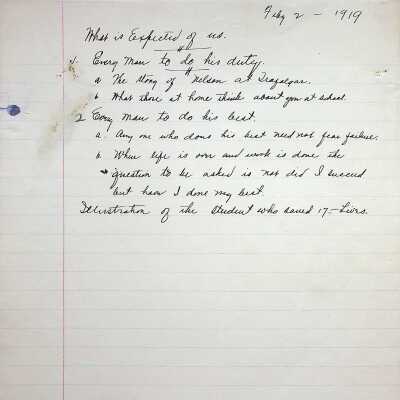 Feby 2 - 1919
What is Expected of us.
"
1. Every Man to do his duty.
a The Story of "Nelson at Trafalgar.
b What those at home think about you at school.
2 Every Man to do his best.
a. Any one who does his best need not fear failure.
b. When life is over and work is done the
question to be asked is not did I succeed
but have I done my best.
Illustration of the Student who saved 17 - Lives.